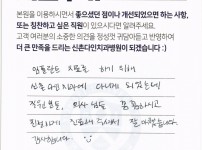 본원을 이용하시면서 좋으셨던 점이나 개선되었으면 하는 사항,
또는 칭찬하고 싶은 직원이 있으시다면 알려주세요.
고객 여러분의 소중한 의견을 정성껏 귀담아듣고 반영하여
더 큰 만족을 드리는 신촌다인치과병원이 되겠습니다 :)
임플란트 치료를 하기 위해
다니게 되었는데
직원분들, 의사 선생님 꼼꼼하시고
친절하게 진료해 주셔서 잘
감사합니다 ☺